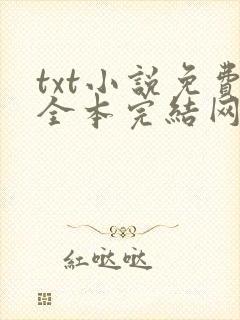 txt小説免費
全本完結网
紅哒哒